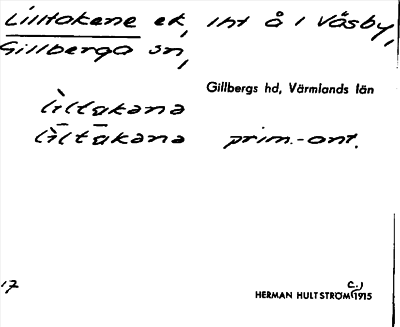 Lilltakene ek, int å i Väsby,
Gillberga sn,
Gillbergs hd, Värmlands län
lìltakəna
lìltakəna prim.-ant.
17
HERMAN HULTSTRÖM (c.) 1915